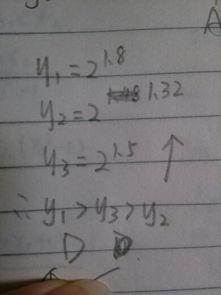 y₁ = 2^1.8
y₂ = 2^1.32
y₃ = 2^1.5 ↑
∴ y₁ > y₃ > y₂
D